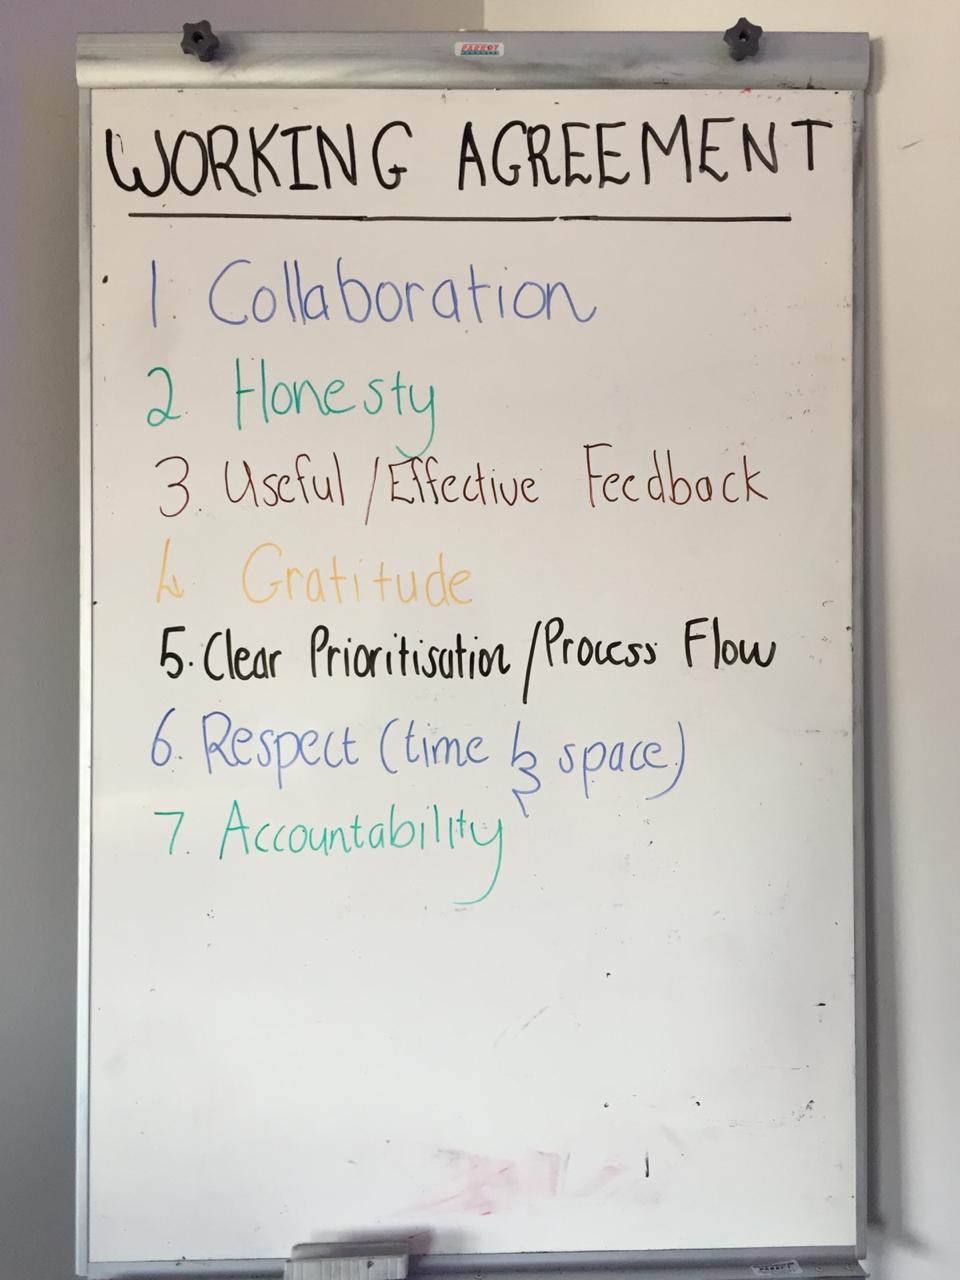 PARROT
PRODUCTS
WORKING AGREEMENT
1. Collaboration
2. Honesty
3. Useful / Effective Feedback
4. Gratitude
5. Clear Prioritisation / Process Flow
6. Respect (time & space)
7. Accountability
PARROT